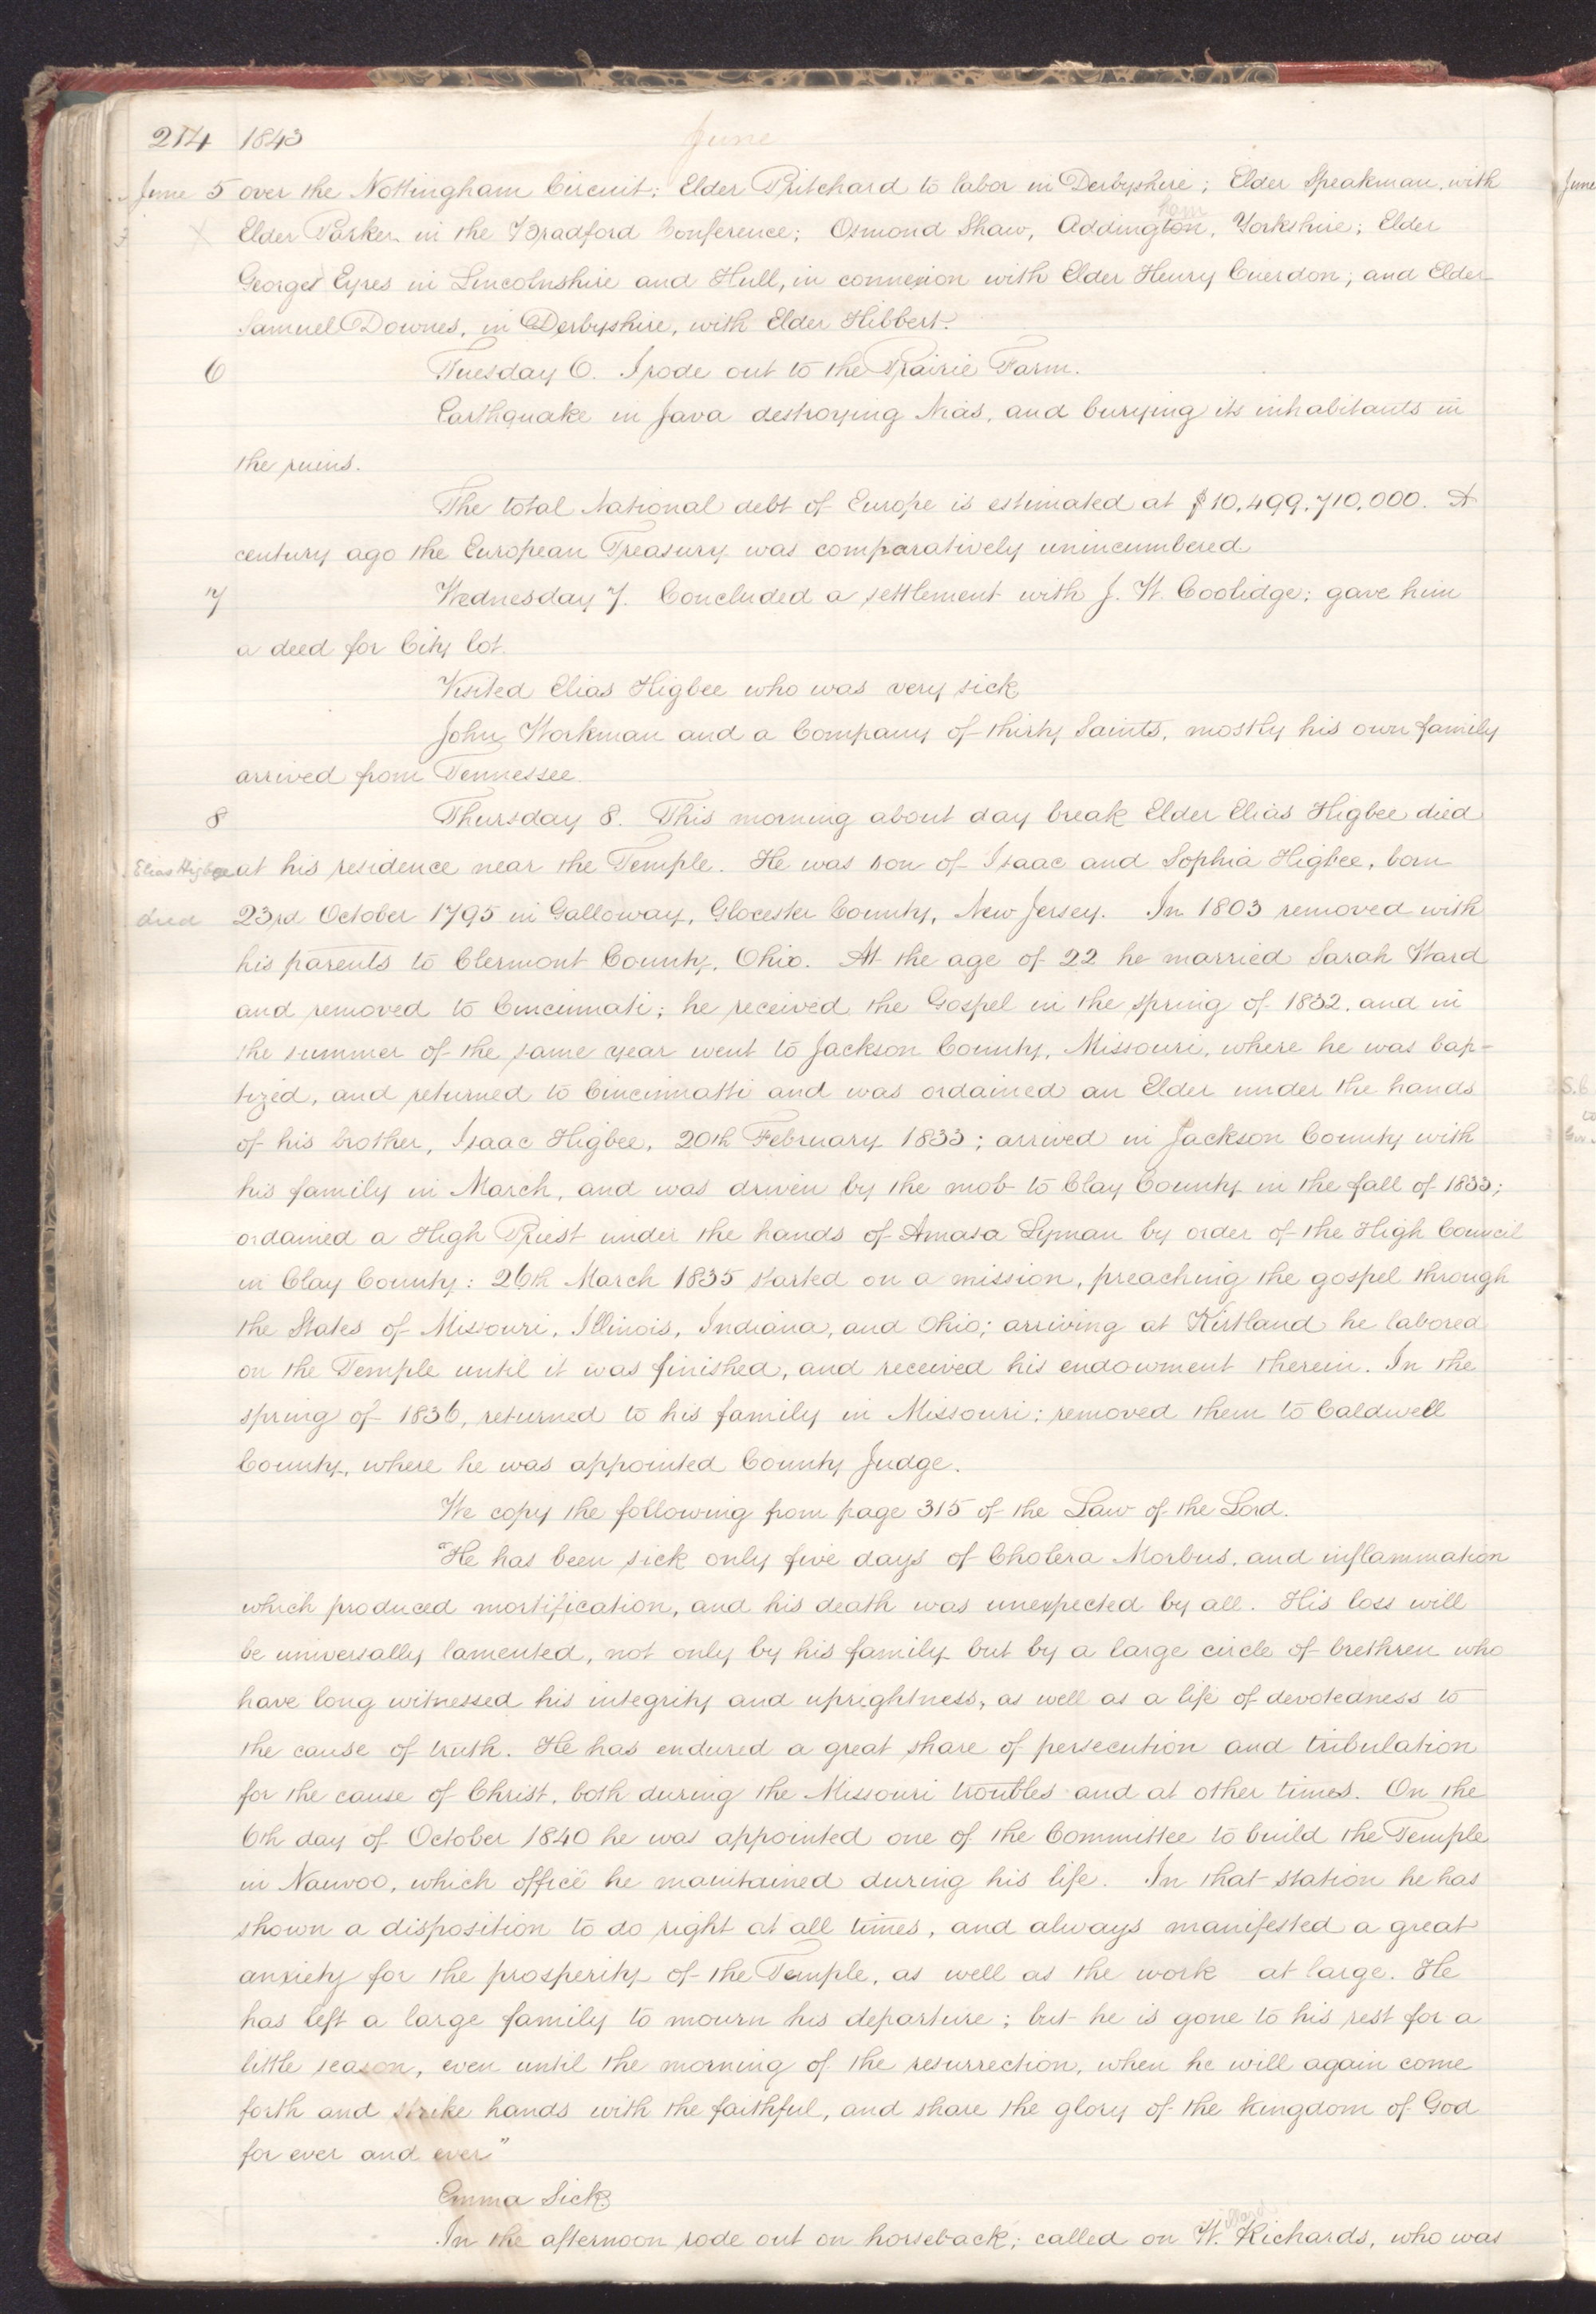 214 1843 June
June 5 over the Nottingham Circuit; Elder Pritchard to labor in Derbyshire; Elder Speakman, with
Elder Parker in the Bradford Conference; Osmond Shaw, Addington, Yorkshire; Elder
George Eyres in Lincolnshire and Hull, in connexion with Elder Henry Cuerdon; and Elder
Samuel Downes, in Derbyshire, with Elder Hibbert.
6 Tuesday 6. I rode out to the Prairie Farm.
Earthquake in Java destroying Nias, and burying its inhabitants in
the ruins.
The total National debt of Europe is estimated at $10,499,710,000. A
century ago the European Treasury was comparatively unincumbered
7 Wednesday 7. Concluded a settlement with J. W. Coolidge; gave him
a deed for City lot.
Visited Elias Higbee who was very sick
John Workman and a Company of thirty Saints, mostly his own family
arrived from Tennessee.
8 Thursday 8. This morning about day break Elder Elias Higbee died
Elias Higbee at his residence near the Temple. He was son of Isaac and Sophia Higbee, born
died 23rd October 1795 in Galloway, Glocester County, New Jersey. In 1803 removed with
his parents to Clermont County, Ohio. At the age of 22 he married Sarah Ward
and removed to Cincinnati; he received the Gospel in the spring of 1832, and in
the summer of the same year went to Jackson County, Missouri, where he was bap-
tized, and returned to Cincinnatti and was ordained an Elder under the hands
of his brother, Isaac Higbee, 20th February 1833; arrived in Jackson County with
his family in March, and was driven by the mob to Clay County in the fall of 1833;
ordained a High Priest under the hands of Amasa Lyman by order of the High Council
in Clay County: 26th March 1835 started on a mission, preaching the gospel through
the States of Missouri, Illinois, Indiana, and Ohio; arriving at Kirtland he labored
on the Temple until it was finished, and received his endowment therein. In the
spring of 1836, returned to his family in Missouri; removed them to Caldwell
County, where he was appointed County Judge.
We copy the following from page 315 of the Law of the Lord.
"He has been sick only five days of Cholera Morbus, and inflammation
which produced mortification, and his death was unexpected by all. His loss will
be universally lamented, not only by his family but by a large circle of brethren who
have long witnessed his integrity and uprightness, as well as a life of devotedness to
the cause of truth. He has endured a great share of persecution and tribulation
for the cause of Christ, both during the Missouri troubles and at other times. On the
6th day of October 1840 he was appointed one of the Committee to build the Temple
in Nauvoo, which office he maintained during his life. In that station he has
shown a disposition to do right at all times, and always manifested a great
anxiety for the prosperity of the Temple, as well as the work at large. He
has left a large family to mourn his departure; but he is gone to his rest for a
little season, even until the morning of the resurrection, when he will again come
forth and strike hands with the faithful, and share the glory of the kingdom of God
for ever and ever"
Emma Sick
In the afternoon rode out on horseback; called on W. Richards, who was